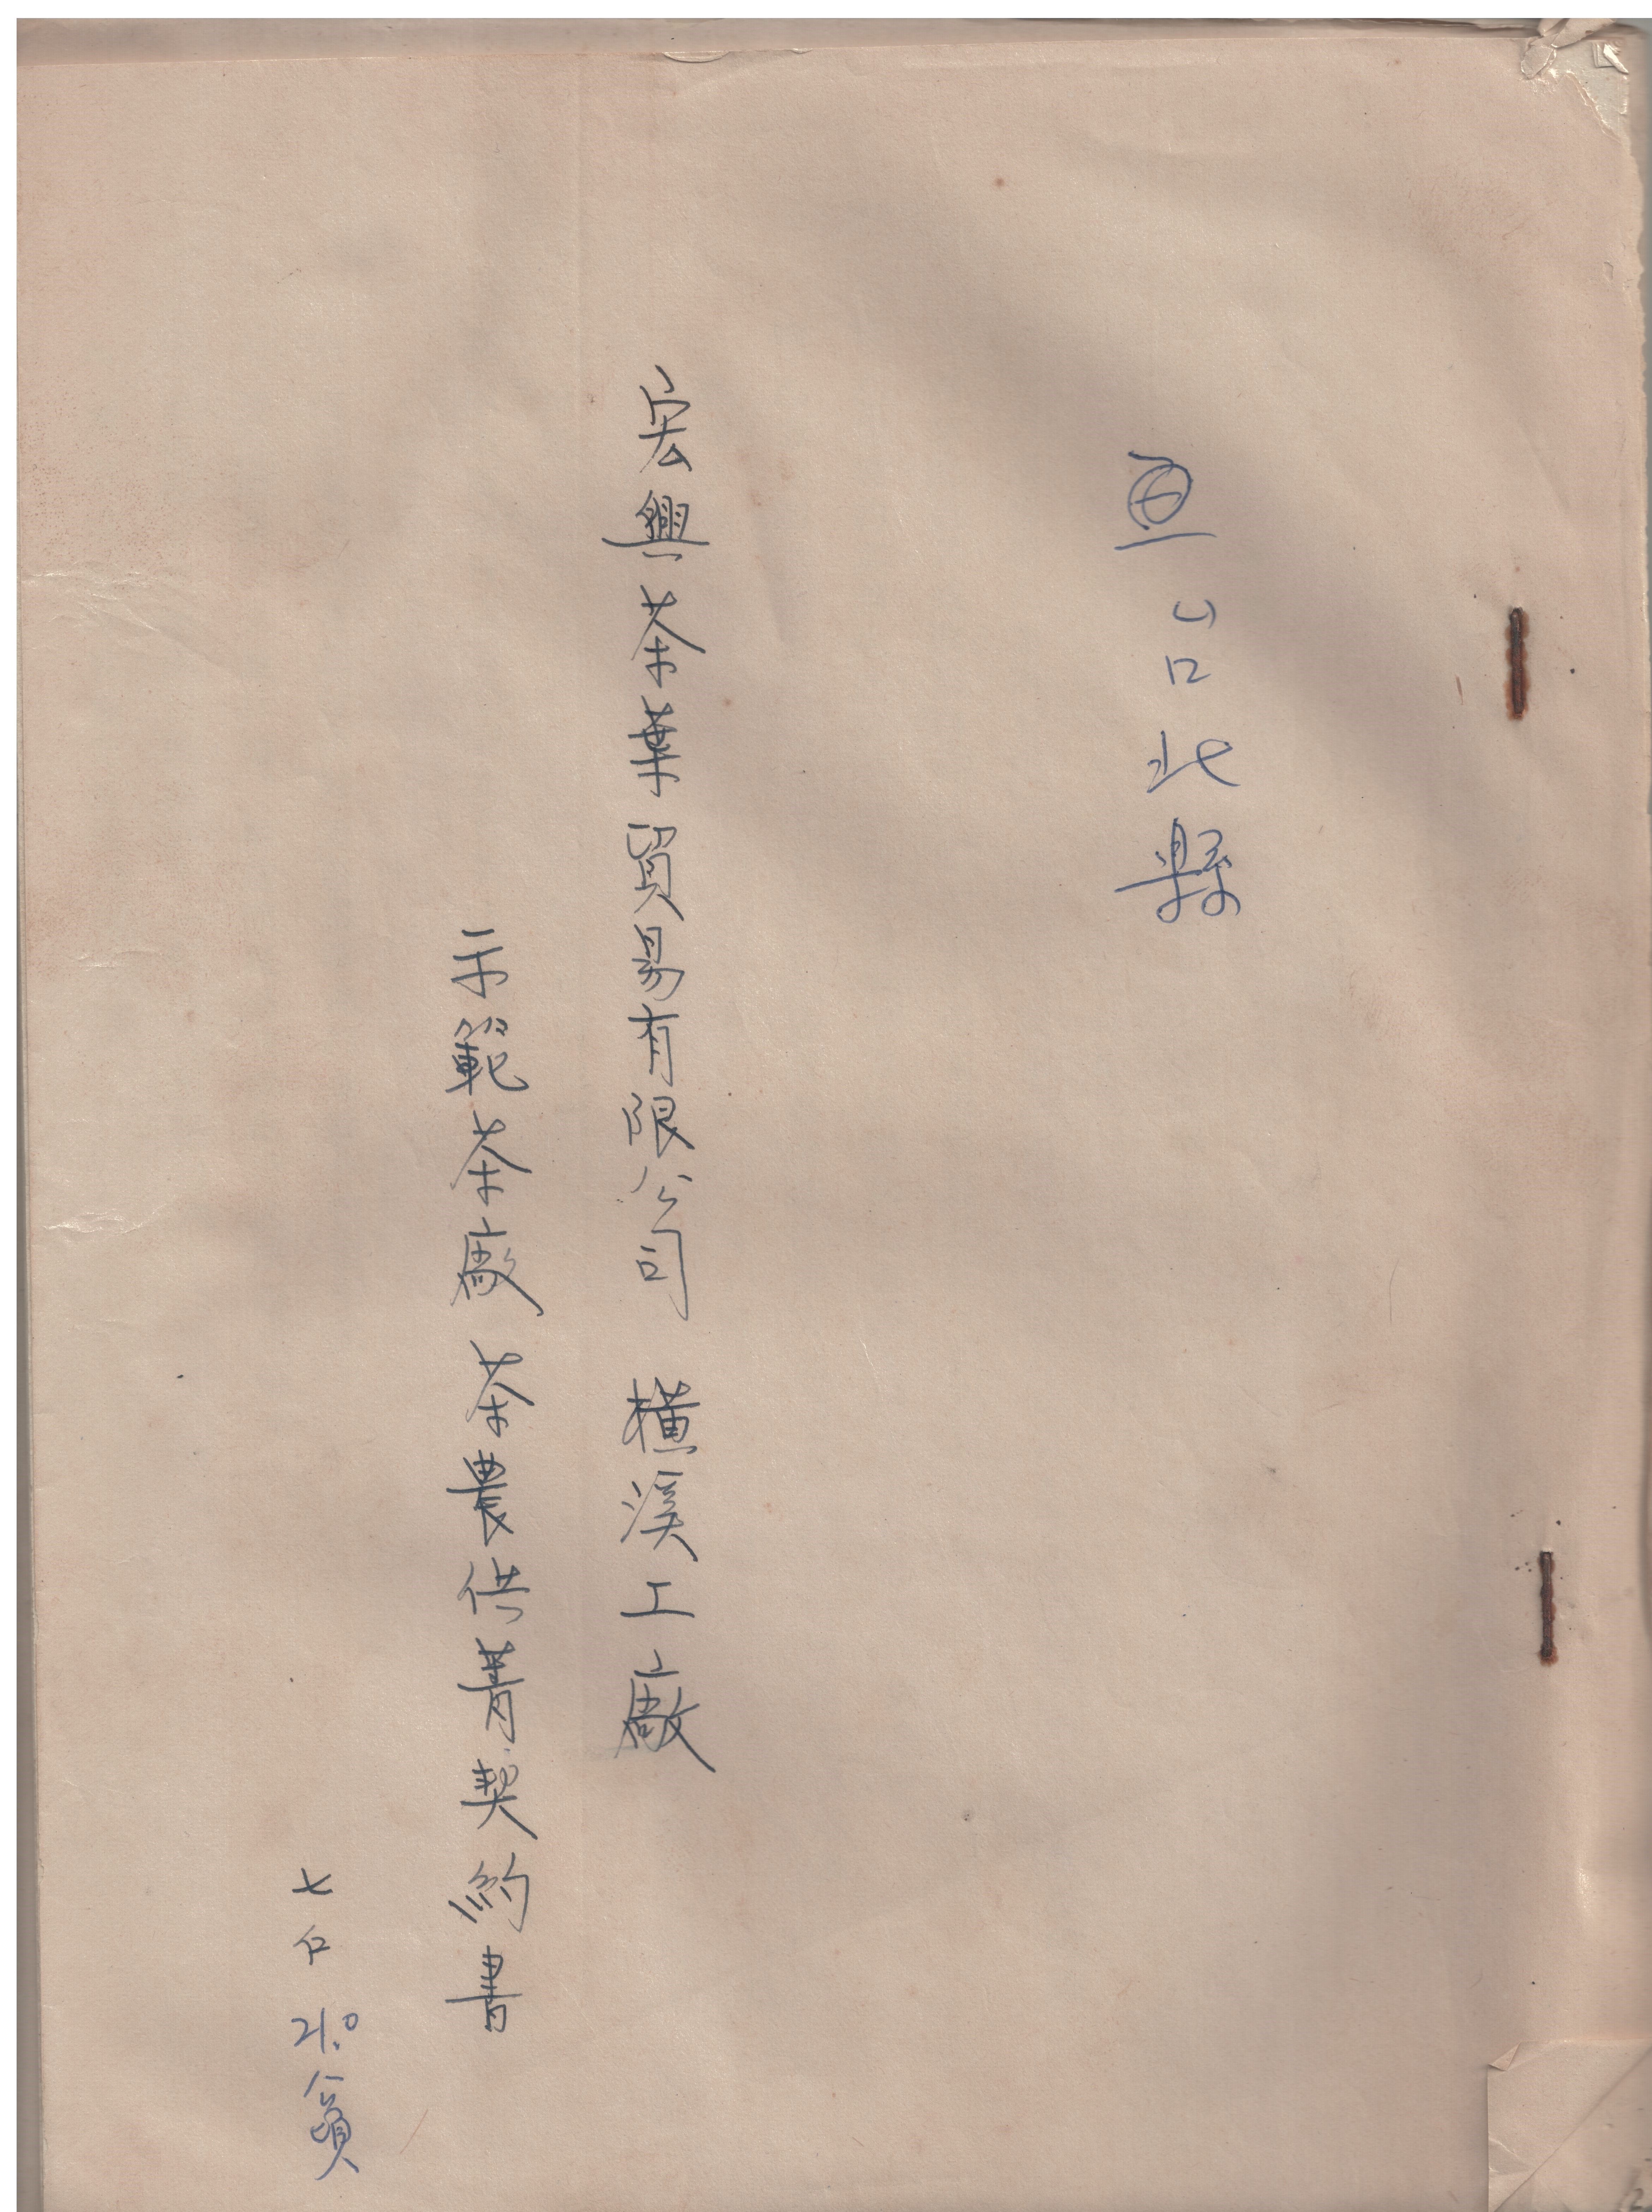 台北縣
宏興茶葉貿易有限公司 橫溪工廠
示範茶廠 茶農供菁契約書
七戶 21.0公頃